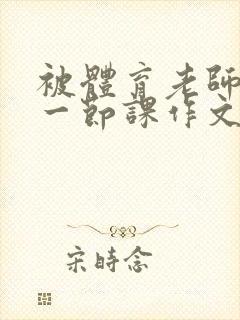 被體育老師
一節課作文
宋時念